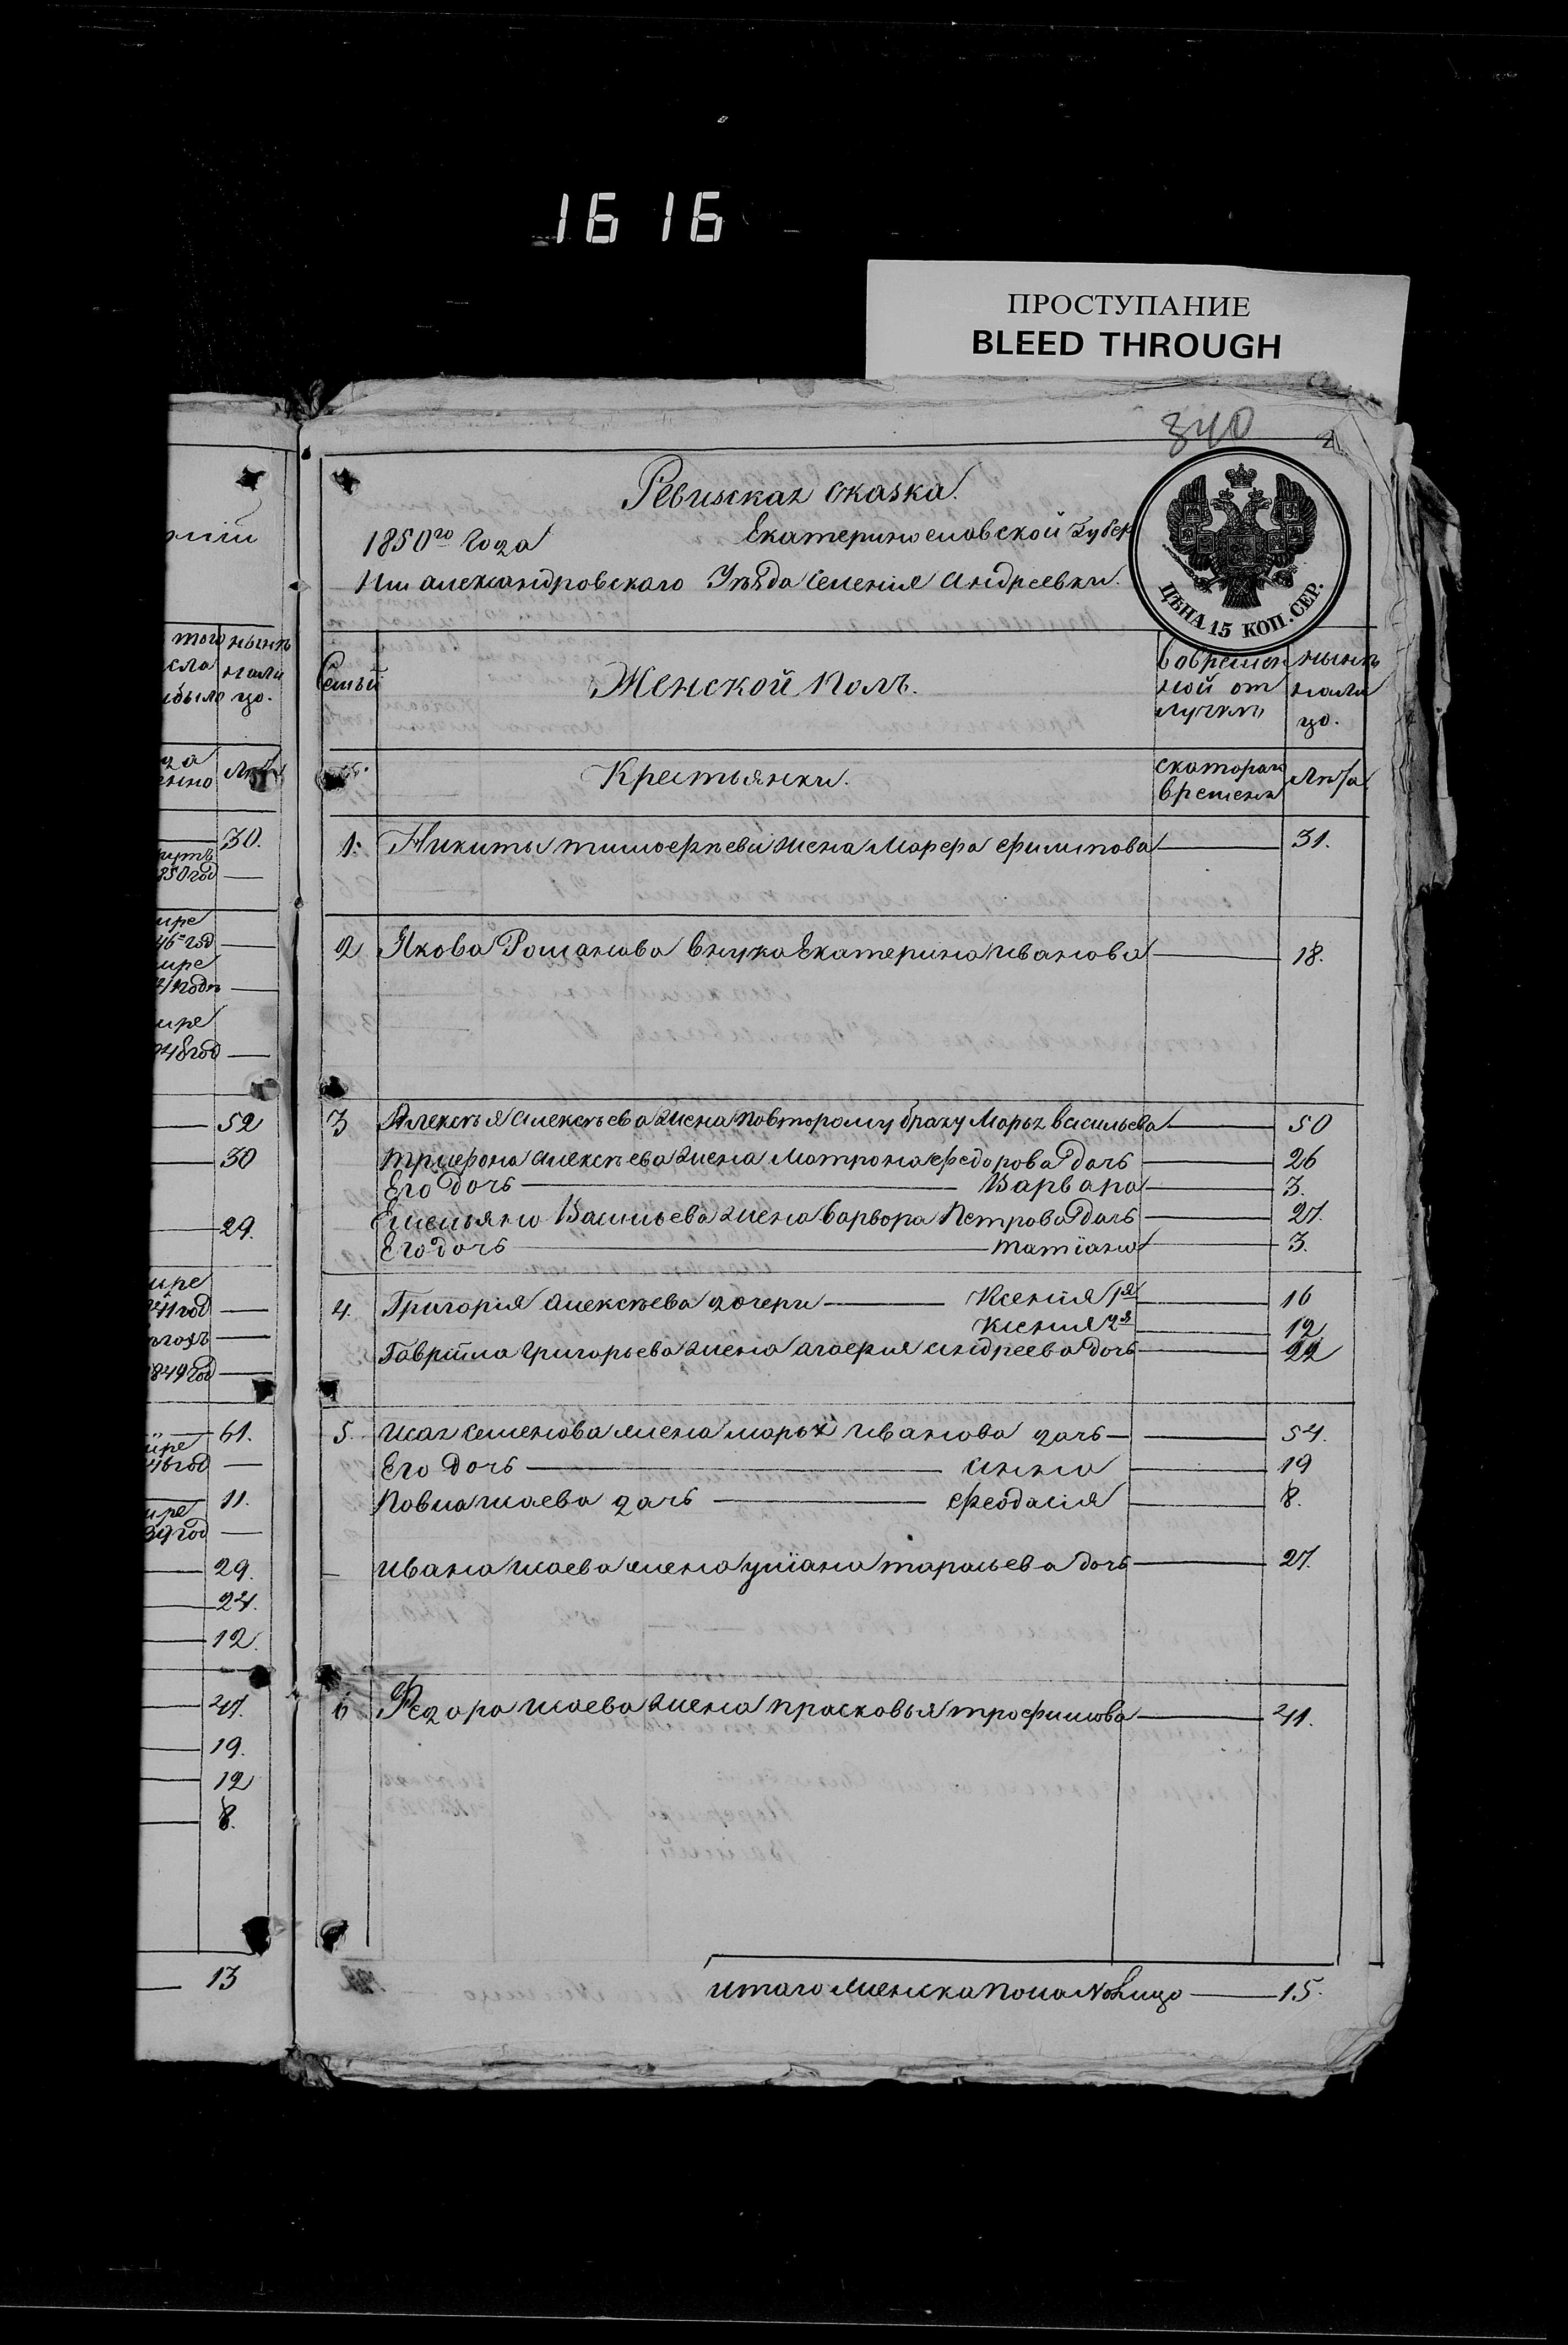 1616
ПРОСТУПАНИЕ
BLEED THROUGH
340
Ревизская сказка.
1850го Года Екатеринославской Губер
ніи александровскаго Уѣзда Селенія Андреевки.
ЦѢНА 15 КОП. СЕР.
Семьи Женской полъ. вовремен ной от лучкѣ нынѣ нали цо.
Крестьянки. скоторая времени Лѣта
1. Никиты тимоефеева жена Марфа филипова 31.
2 Якова Романова внука Екатерина иванова 18.
3 Алексѣя Алексѣева жена повторому браку Марья васильева 50
трифона алексѣева жена Матрона федорова дочь 26
Его дочь Варвара 3.
Емельяна Васильева жена варвара Петрова дочь 27.
Его дочь татіана 3.
4. Григорія алексѣева дочери Ксенія 1я 16
Ксения 2я 12
Гаврііла григорьева жена агафия андреева дочь 22
5. исая семенова жена марья иванова дочь 54.
Его дочь анна 19
Павла исаева дочь феодасія 8.
ивана исаева жена уліана тарасьева дочь 27.
6 Федора исаева жена прасковья трофимова 41.
итого женска пола налицо 15.
того нынѣ
сла нали
цо.
30.
850год
46 год
48год
52
30
29.
41год
849год
61.
46год
11.
39год
29.
24.
12.
41.
19.
12
8.
13